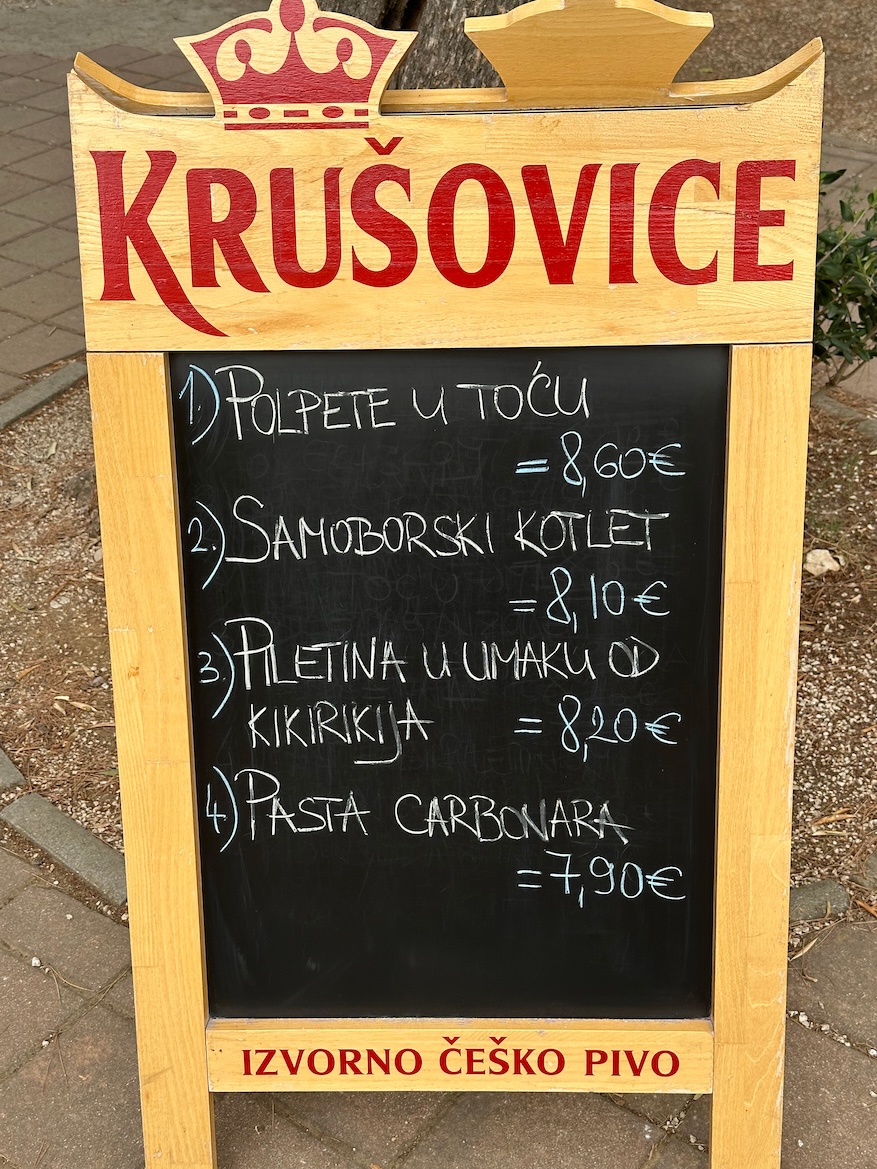 KRUŠOVICE
1.) POLPETE U TOĆU
= 8,60€
2.) SAMOBORSKI KOTLET
= 8,10€
3.) PILETINA U UMAKU OD
KIKIRIKIJA = 8,20€
4.) PASTA CARBONARA
= 7,90€
IZVORNO ČEŠKO PIVO